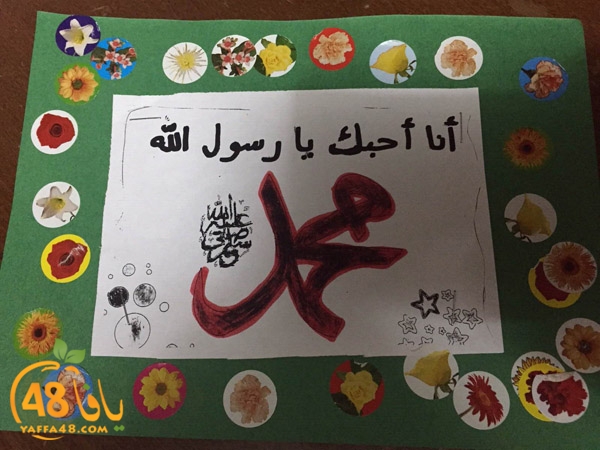 أنا أحبك يا رسول الله
محمد
صلى الله عليه وسلم
يافا 48
YAFFA48.COM